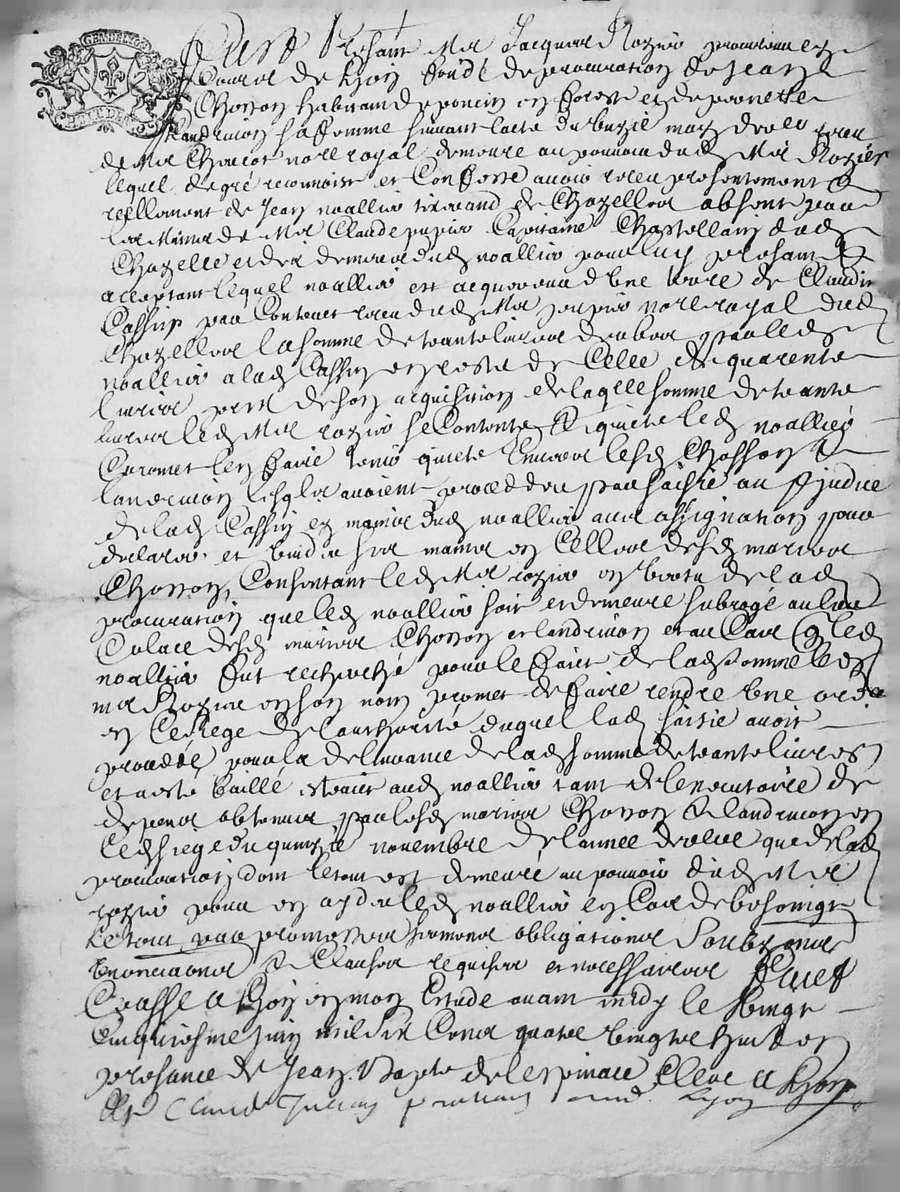 GENERALITÉ
DE LYON
Fust present Mre Jacques Rozier procureur es
Cours de Lyon fondé de procuration de Jean
Chosson habitant de poncin en forest et de ponette
Landrivon sa femme suivant l'acte du mars dernier receu
de Me notre royal demeuré au pouvoir dud Mre Rozier
lequel de gré reconnoist et Confesse avoir receu presentement et
reellement de Jean noallier tisserand de Chazelles absent par
les mains de Mre Claude pupier Capitaine Chastellain dud
Chazelles et des deniers dud noallier pour luy present et
acceptant lequel noallier est acquereur d'une terre de Claudine
Cassin par Contract receu dud Mre pupier notre royal dud
Chazelles la somme de trante livres deubes par led
noallier a lad Cassin en reste de Celle de quarente
livres prix de son acquisition de laqlle somme de trante
livres led Mre rozier se Contente et quitte led noallier
Et promet l'en faire tenir quitte Envers lesd Chosson et
landrivon lesqls avoient procedder par saisie au prejudice
de lad Cassin es mains dud noallier avec assignation pour
declarer et vuider ses mains en Celles desd mariez
Chosson, Consentant led Mre rozier en vertu de lad
procuration que led noallier soit et demeure subrogé au lieu
Et place desd mariez Chosson et landrivon et au Cas que led
noallier fut recherché pour le faict de lad somme led
mre Rozier en son nom promet de faire rendre une ord.
en Ce siege de l'authorité duquel lad saisie avoit
procedé, pour la delivrance de lad somme de trante livres
et a esté baillé extraict aud noallier tant de l'executoire de
depens obtenus par lesd mariez Chosson et landrivon en
Ced siege du quinze novembre de l'année derniere que de lad
procuration dont le tout est demeuré au pouvoir dud Mre
rozier pour en ayder led noallier en Cas de besoing
Le tout par promesses sermens obligations soubzmis
renonciaons et Clauses requises et necessaires Faict
Et passé a Lyon en mon Estude avant midy le vingt
Cinquiesme juin mil six Cens quatre vingts huit en
presence de Jean Bapte de lespinace Clerc a Lyon
Et Claude Jullien praticien aud. Lyon